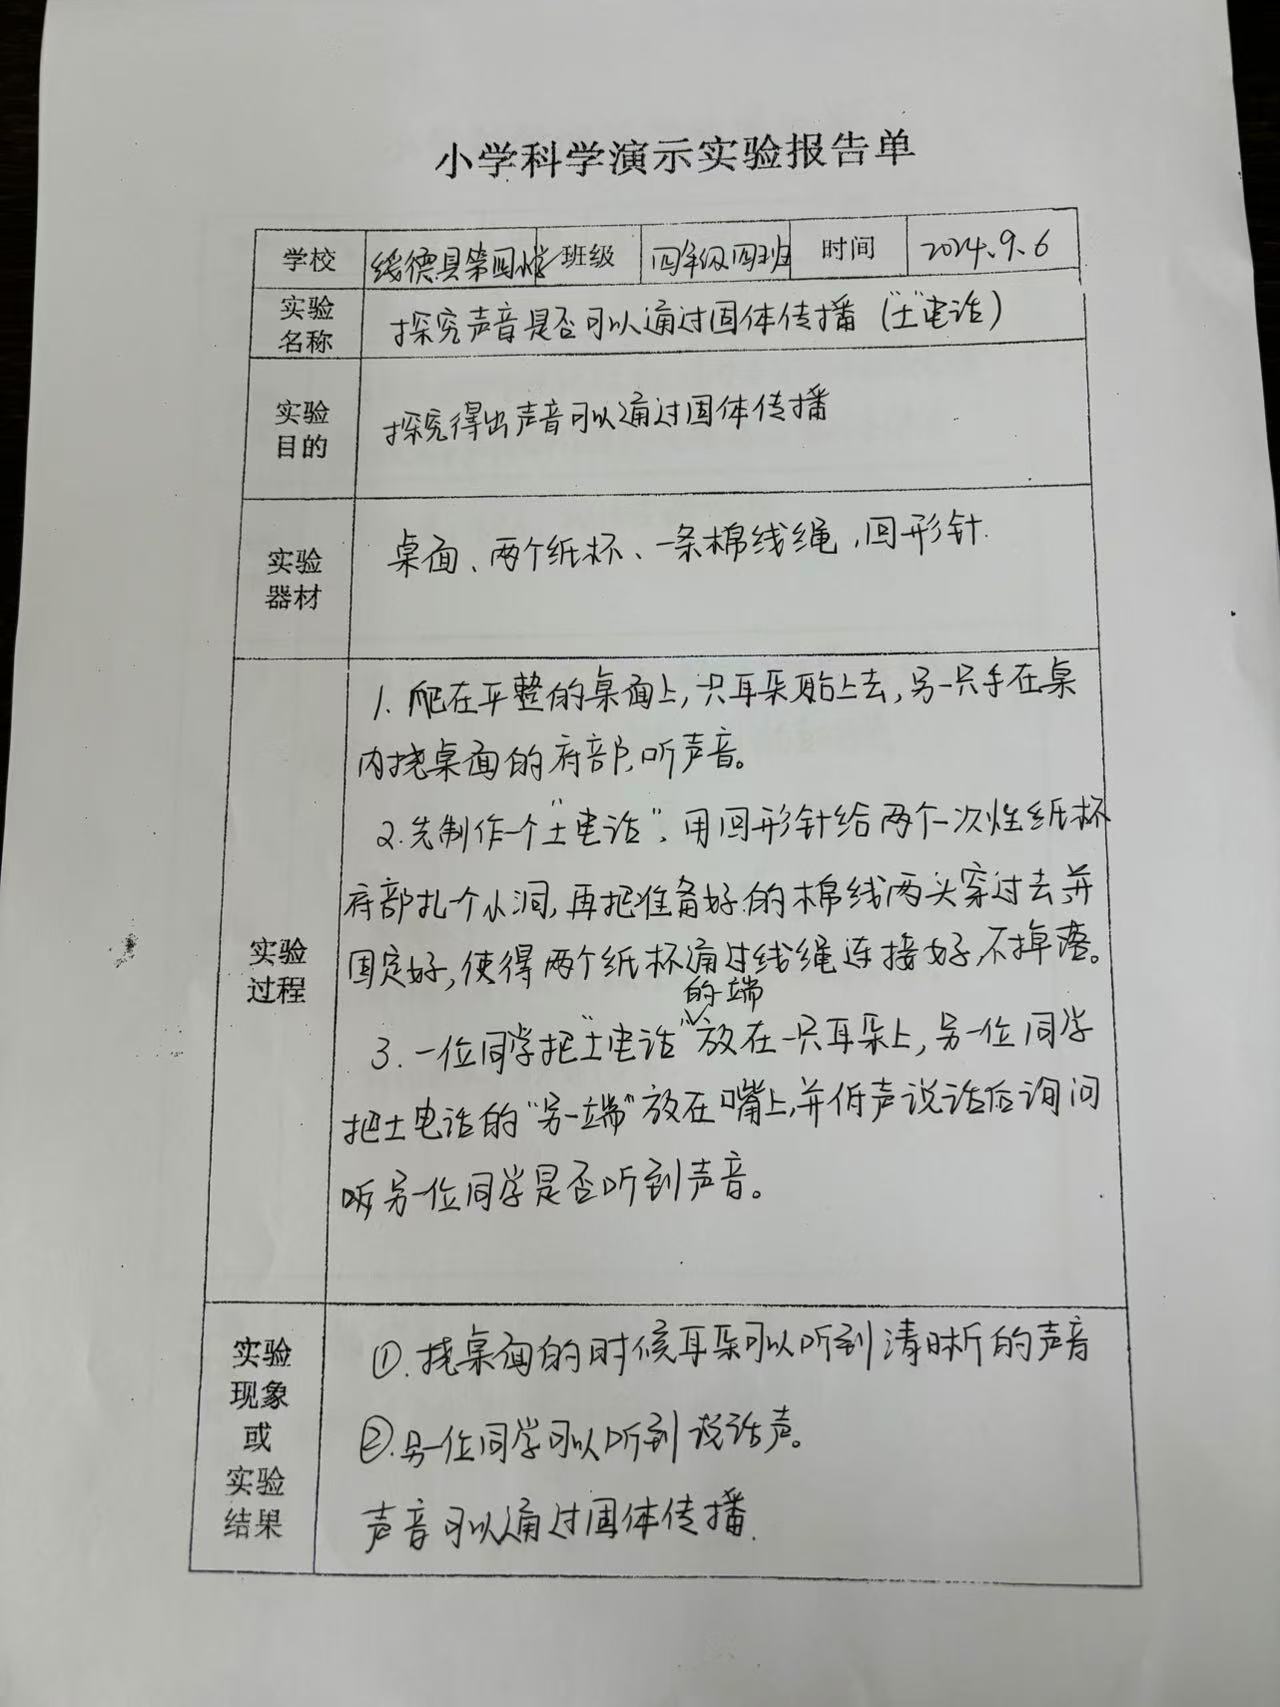 小学科学演示实验报告单
学校 绥德县第四小学 班级 四年级四班 时间 2024.9.6
实验名称 探究声音是否可以通过固体传播（"土"电话）
实验目的 探究得出声音可以通过固体传播
实验器材 桌面、两个纸杯、一条棉线绳,回形针.
实验过程
1. 爬在平整的桌面上,一只耳朵贴上去,另一只手在桌
内挠桌面的底部,听声音。
2.先制作一个"土电话",用回形针给两个一次性纸杯
底部扎个小洞,再把准备好的棉线两头穿过去并
固定好,使得两个纸杯通过线绳连接好,不掉落。
的一端
3.一位同学把"土电话"放在一只耳朵上,另一位同学
把土电话的"另一端"放在嘴上,并低声说话后询问
听另一位同学是否听到声音。
实验现象或实验结果
①.挠桌面的时候耳朵可以听到清晰的声音
②.另一位同学可以听到说话声。
声音可以通过固体传播.